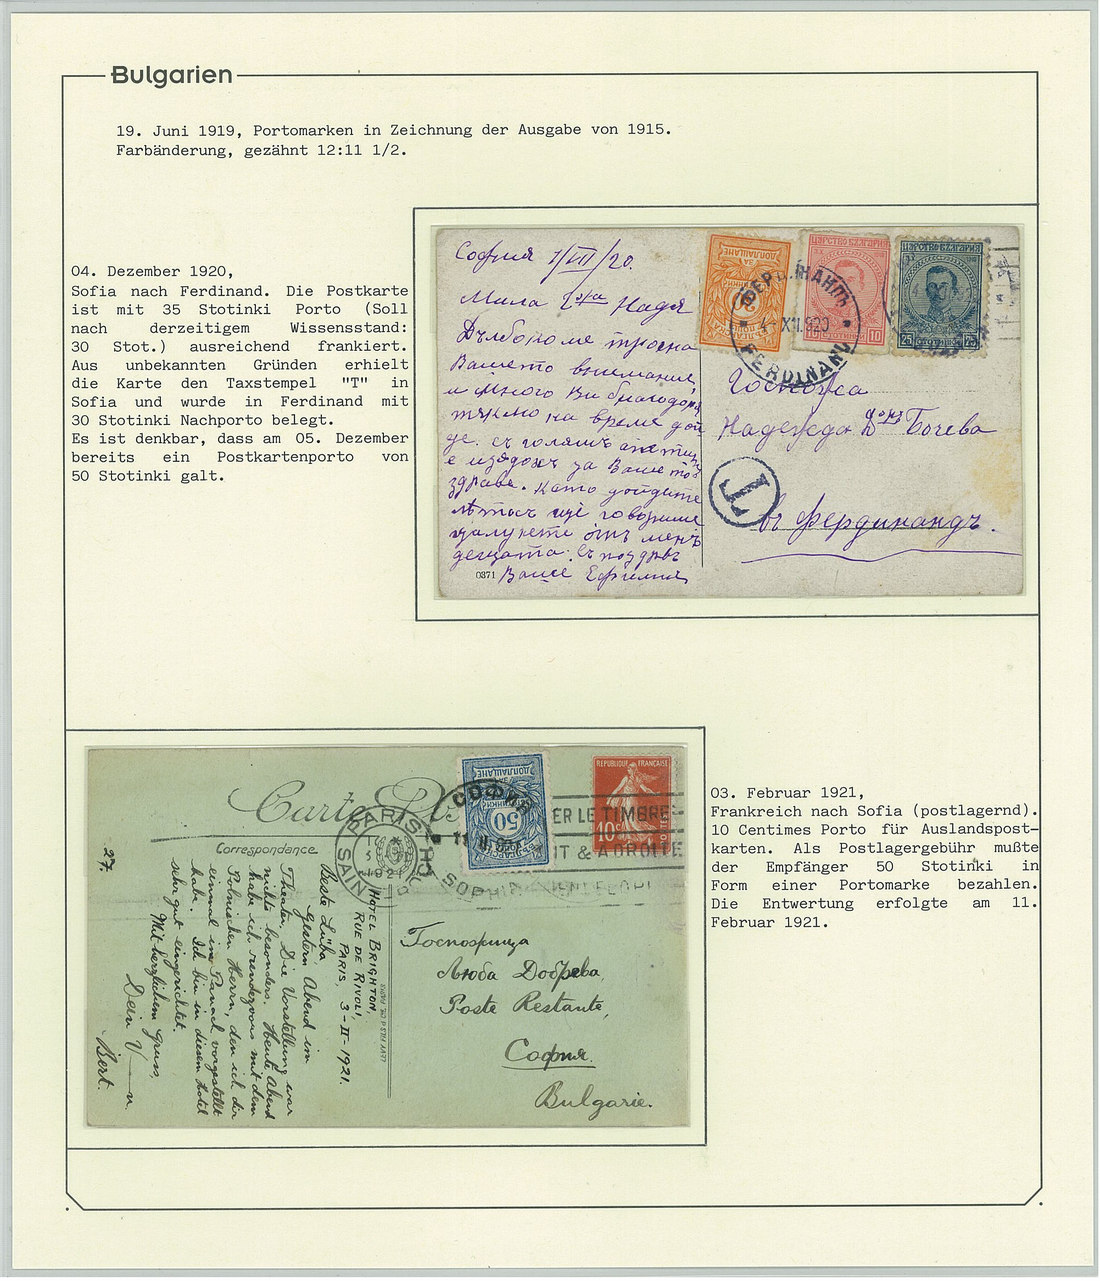 Bulgarien
19. Juni 1919, Portomarken in Zeichnung der Ausgabe von 1915.
Farbänderung, gezähnt 12:11 1/2.
04. Dezember 1920,
Sofia nach Ferdinand. Die Postkarte
ist mit 35 Stotinki Porto (Soll
nach derzeitigem Wissensstand:
30 Stot.) ausreichend frankiert.
Aus unbekannten Gründen erhielt
die Karte den Taxstempel "T" in
Sofia und wurde in Ferdinand mit
30 Stotinki Nachporto belegt.
Es ist denkbar, dass am 05. Dezember
bereits ein Postkartenporto von
50 Stotinki galt.
София
Мила Г-жа Надя
Дълбоко ме трогна
Вашето внимание,
и много Ви благодаря
тъкмо на време дой
де. съ голямъ апетит
е изядохъ за Вашето
здраве. Като дойдете
лѣтосъ ще говориме
целунете отъ менъ
децата. Съ поздравъ
0371
ЦАРСТВО БЪЛГАРИЯ
10
СТОТИНКИ
ЦАРСТВО БЪЛГАРИЯ
25 СТОТИНКИ 25
ФЕРДИНАНДЪ
FERDINAND
Госпожа
Надежда Бочева
T
въ Фердинандъ.
Carte
Correspondance
PARIS
1921
СОФИЯ
SOPHIA
ДОПЛАЩАНЕ
50
REPUBLIQUE FRANÇAISE
10c
POSTES
ER LE TIMBRE
T & A DROITE
HOTEL BRIGHTON,
RUE DE RIVOLI,
PARIS, 3-II-1921.
Beste Lüba
Gestern Abend im
Theater. Die Vorstellung war
nichts besonders. Heute Abend
habe ich rendezvous mit dem
Polnischen Herrn, den ich dir
einmal im Panach vorgestellt
habe. Ich bin in diesem Hotel
sehr gut eingerichtet.
Mit herzlichem Gruss,
Dein
Bert.
27.
LEVY FILS & CIE, PARIS
Госпожица
Люба Добрева
Poste Restante,
София.
Bulgarie.
03. Februar 1921,
Frankreich nach Sofia (postlagernd).
10 Centimes Porto für Auslandspost-
karten. Als Postlagergebühr mußte
der Empfänger 50 Stotinki in
Form einer Portomarke bezahlen.
Die Entwertung erfolgte am 11.
Februar 1921.